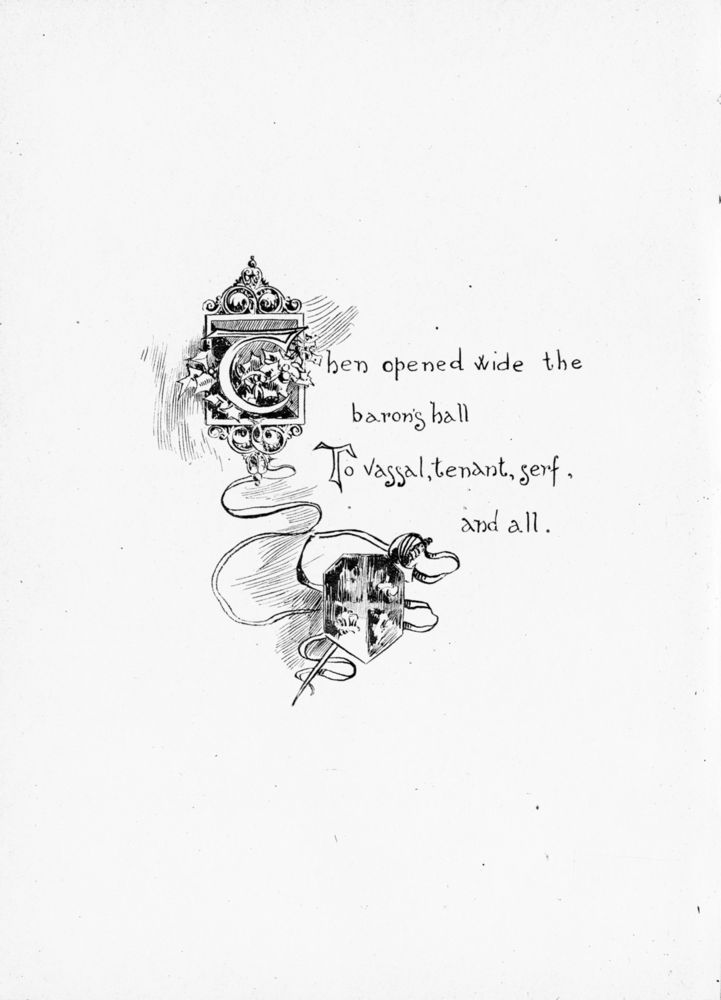 Then opened wide the
baron's hall
To vassal, tenant, serf,
and all.